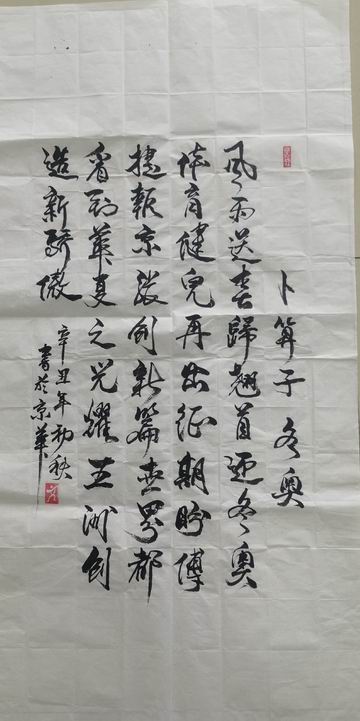 卜算子 冬奥
风雨送春歸翹首迎冬奥
体育健兒再出征期盼傳
捷報京張创新篇世界都
看到華夏之光耀五洲创
造新驕傲
辛丑年初秋
書於京華